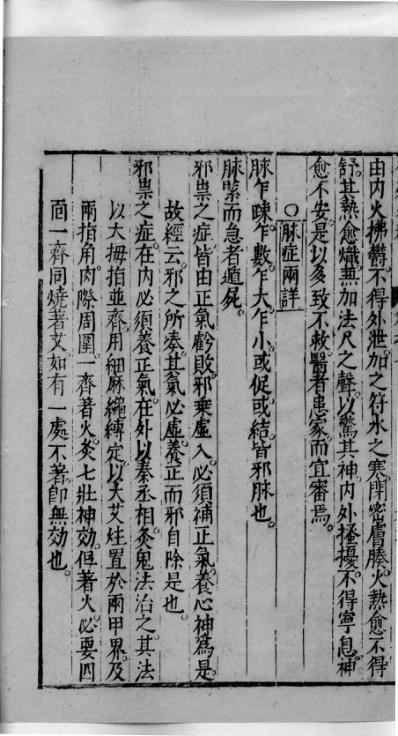 由内火拂鬱不得外泄加之符水之寒閉密膚腠火熱愈不得
舒其熱愈熾兼加法尺之聲以驚其神内外搔擾不得寧息神
愈不安是以多致不救醫者患家而宜審焉
○脉症兩詳
脉乍踈乍數乍大乍小或促或結皆邪脉也
脉緊而急者遁屍
邪祟之症皆由正氣虧敗邪乗虛入必須補正氣養心神爲是
故經云邪之所凑其氣必虛養正而邪自除是也
邪祟之症在内必須養正氣在外以秦丞相灸鬼法治之其法
以大拇指並齊用細麻繩縛定以大艾炷置於兩甲界及
兩指角肉際周圍一齊著火灸七壯神効但著火必要四
面一齊同燒著艾如有一處不著即無効也